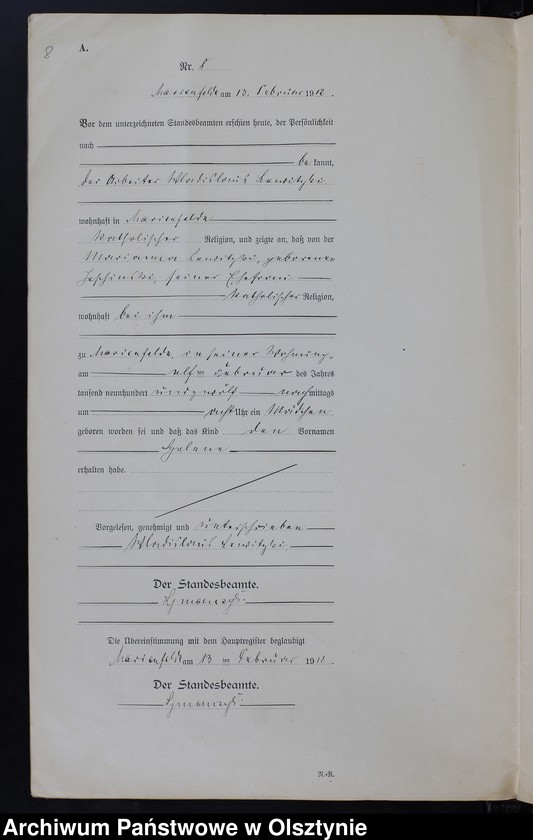 8
A.
Nr. 8
Marienfelde am 13. Februar 1912.
Vor dem unterzeichneten Standesbeamten erschien heute, der Persönlichkeit
nach
be kannt,
der Arbeiter Wladislaus Lewitzki
wohnhaft in Marienfelde
katholischer Religion, und zeigte an, daß von der
Marianna Lewitzki, geborenen
seiner Ehefrau
katholischer Religion,
wohnhaft bei ihm
zu Marienfelde, in seiner Wohnung,
am elften Februar des Jahres
tausend neunhundert und zwölf nachmittags
um acht Uhr ein Mädchen
geboren worden sei und daß das Kind den Vornamen
Helene
erhalten habe.
Vorgelesen, genehmigt und unterschrieben
Wladislaus Lewitzki
Der Standesbeamte.
Die Übereinstimmung mit dem Hauptregister beglaubigt
Marienfelde am 13 ten Februar 1912.
Der Standesbeamte.
N.-R.
Archiwum Państwowe w Olsztynie